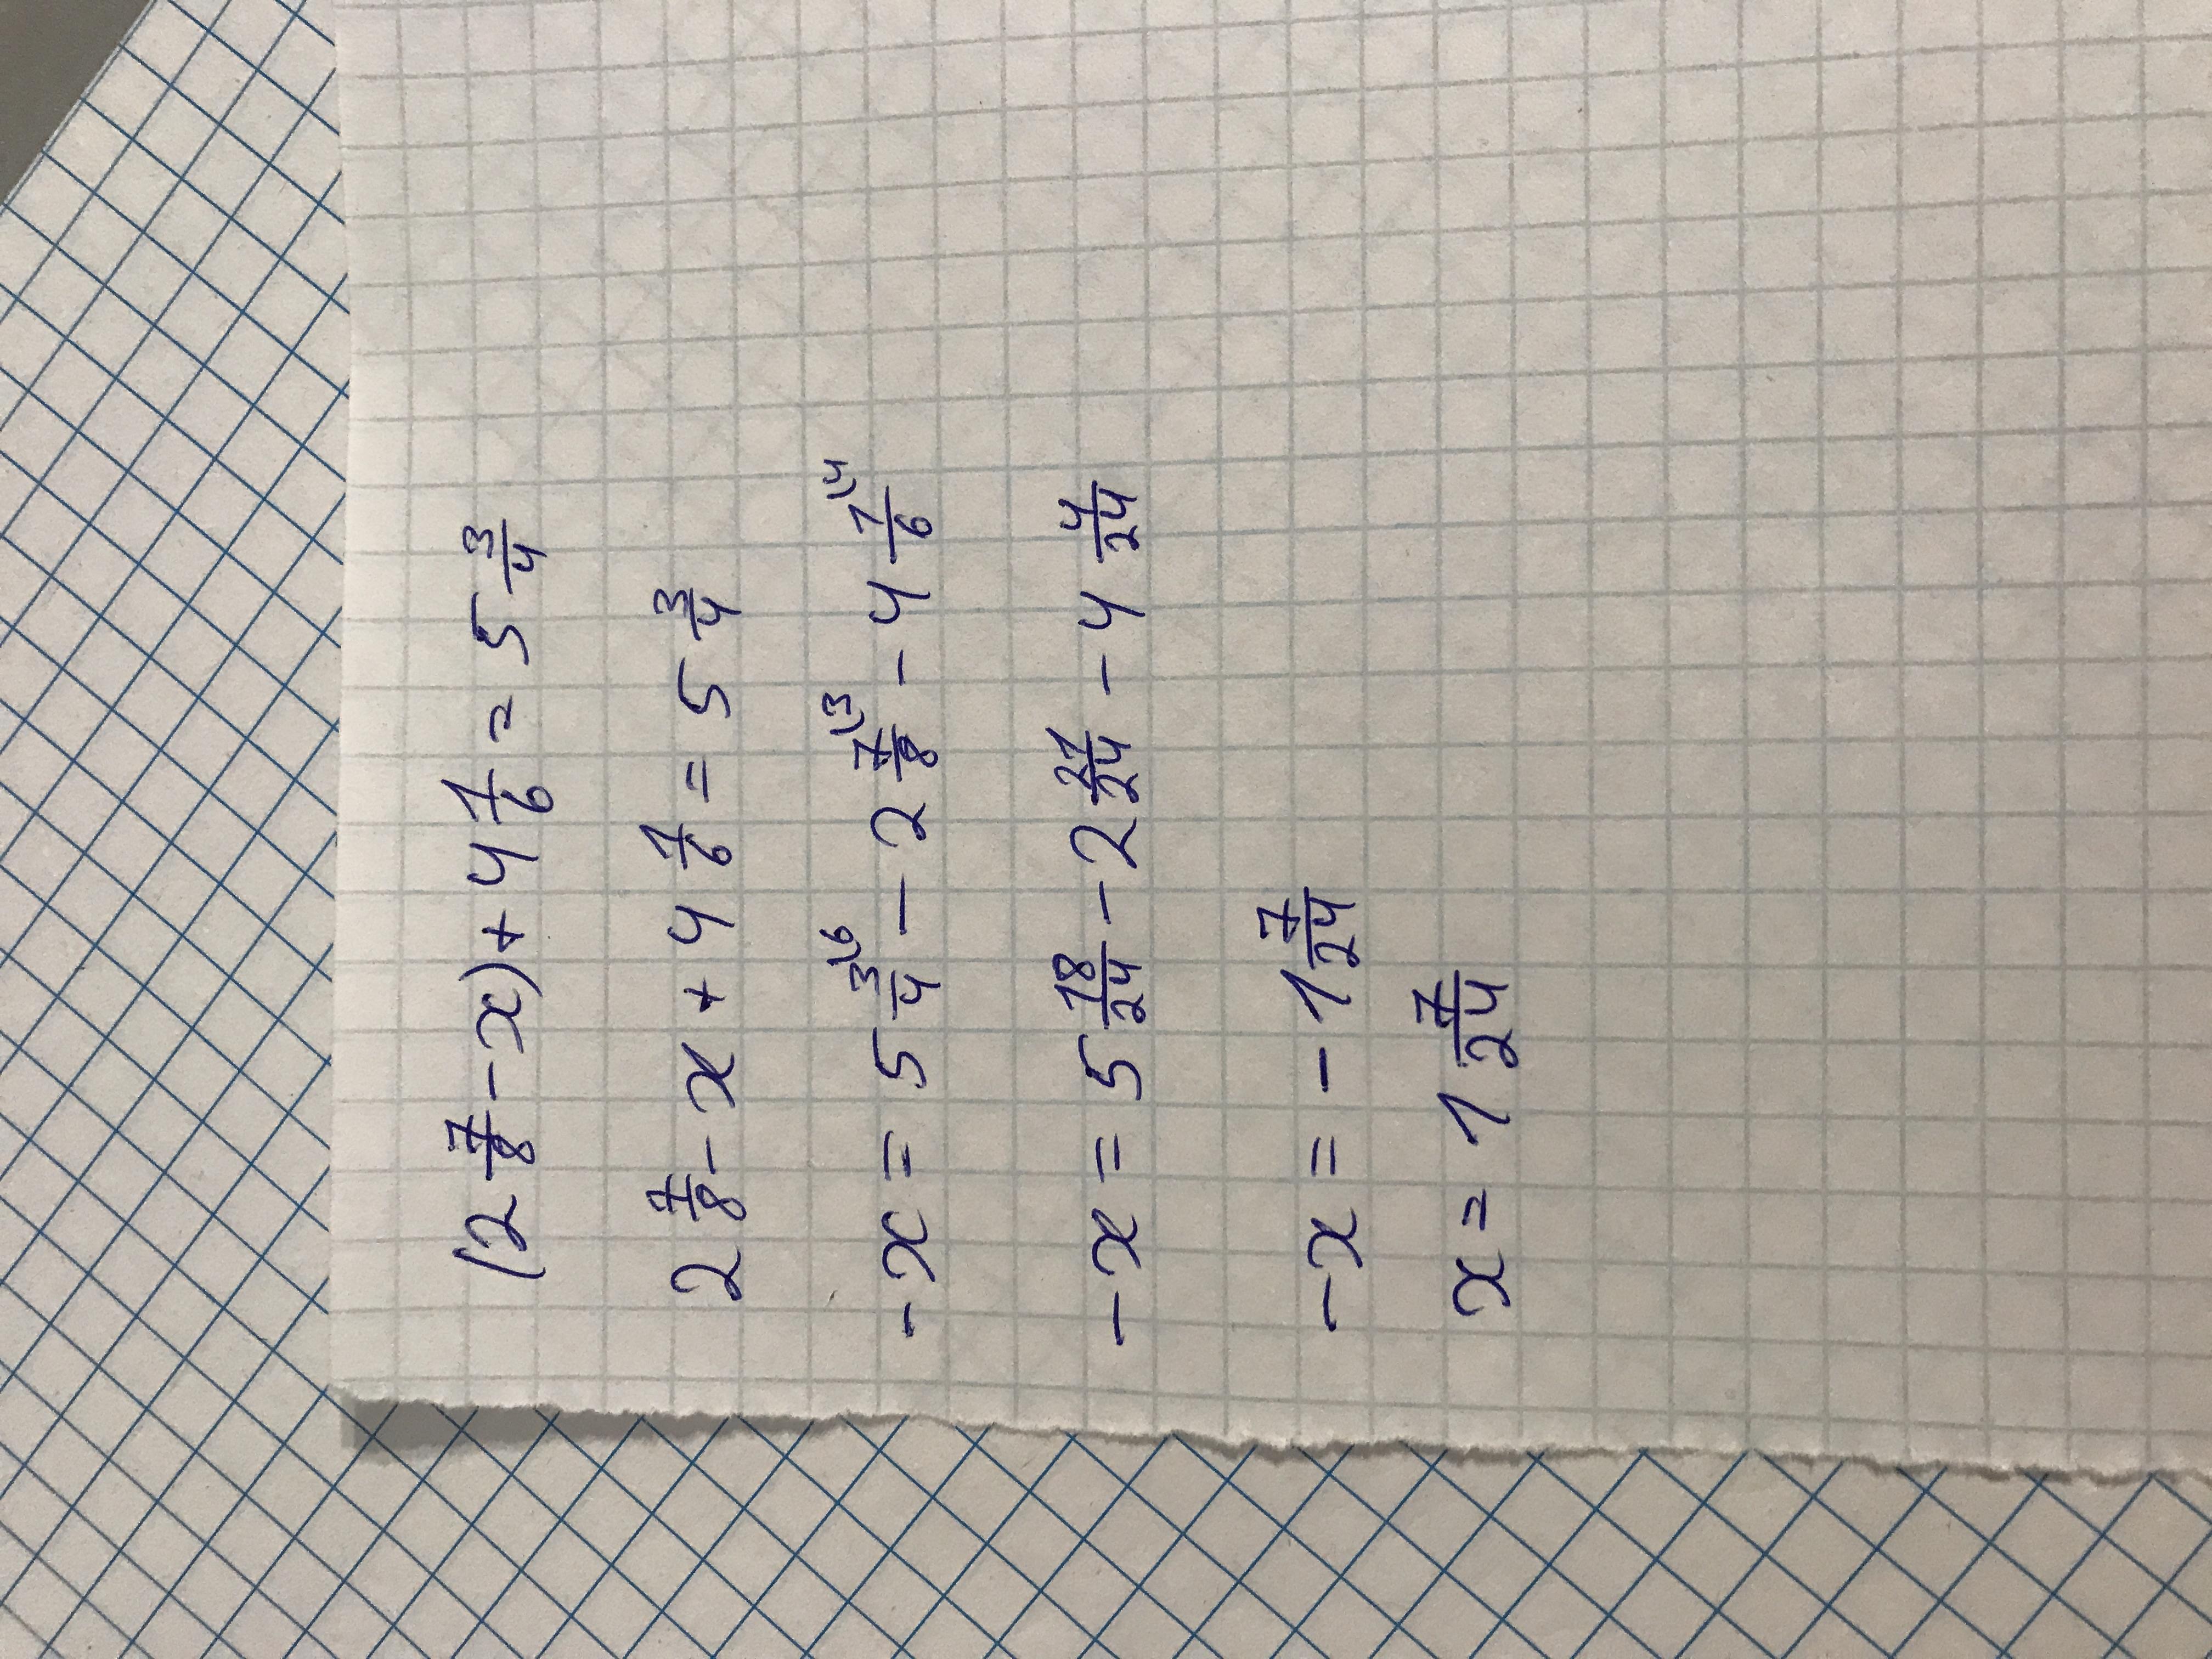 (2 7/8 - x) + 4 1/6 = 5 3/4
2 7/8 - x + 4 1/6 = 5 3/4
-x = 5 3/4 \6 - 2 7/8 \3 - 4 1/6 \4
-x = 5 18/24 - 2 21/24 - 4 4/24
-x = - 1 7/24
x = 1 7/24